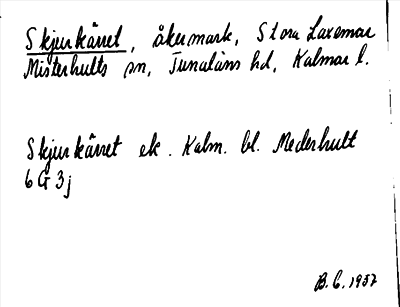 Skjurkärret, åkermark, Stora Laxemar
Misterhults sn, Tunaläns hd, Kalmar l.
Skjurkärret ek. Kalm. bl. Mederhult
6 G 3 j
B.C. 1957